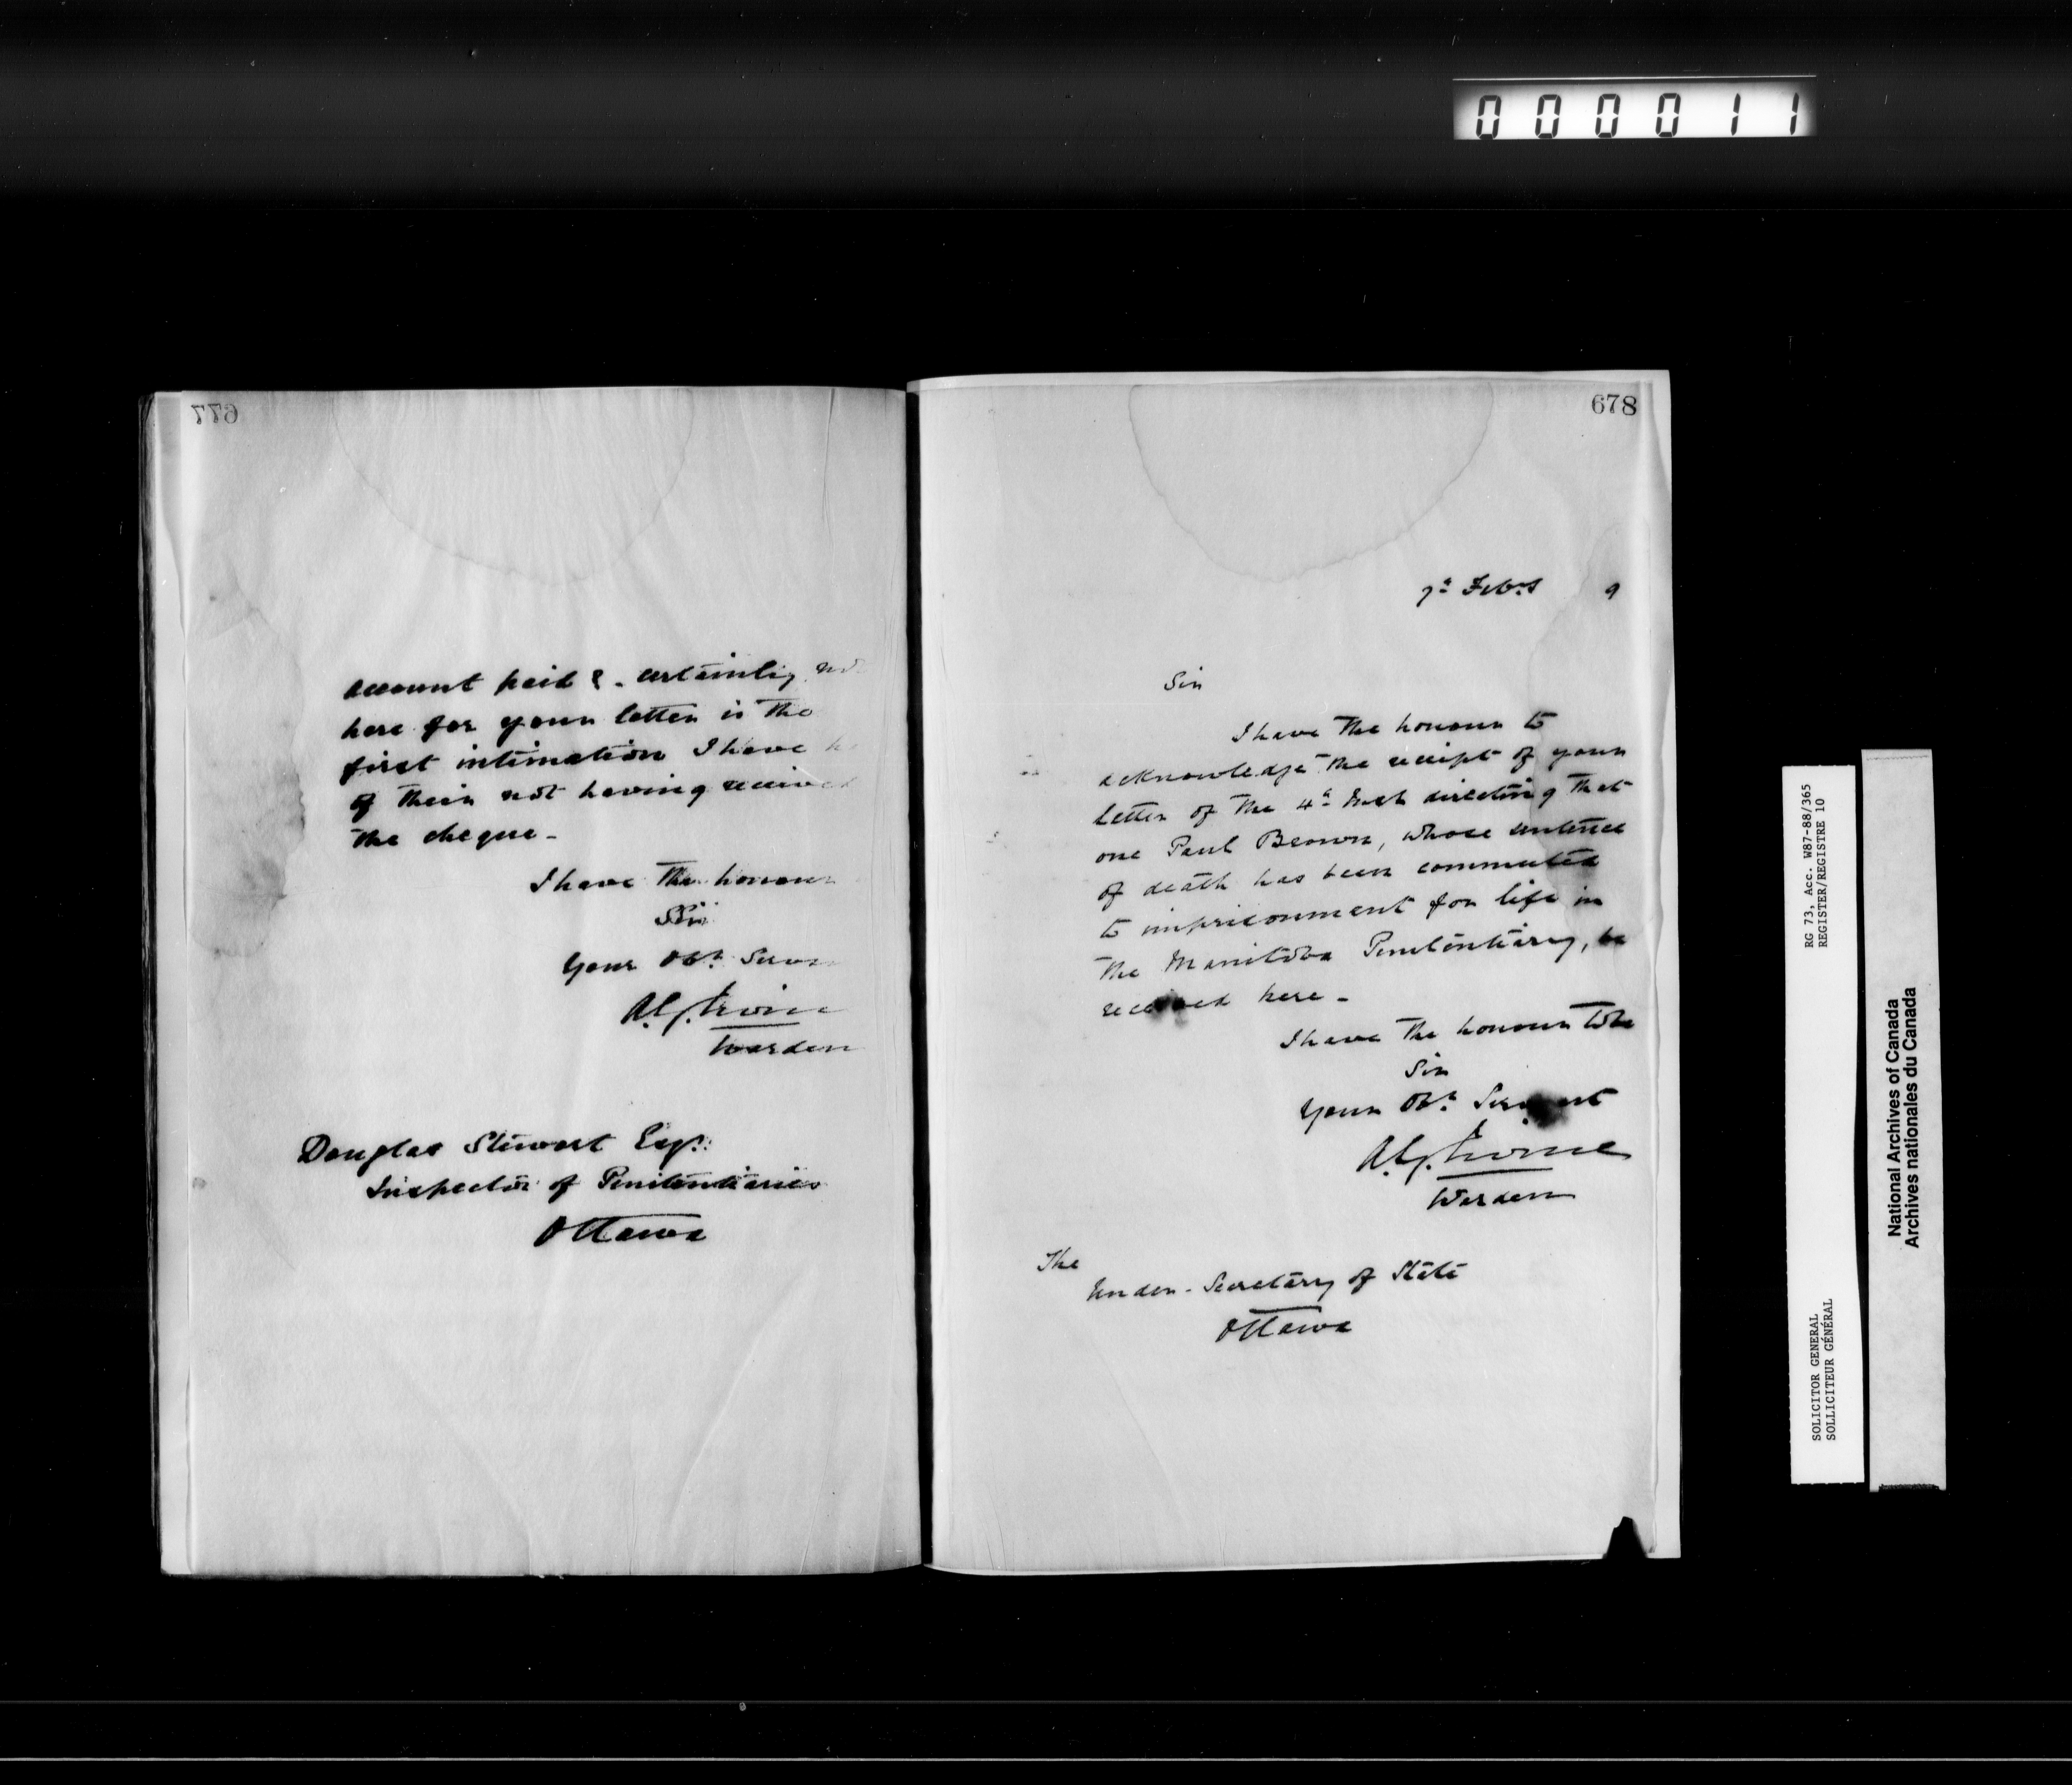 000011
677
account paid & - certainly not
here for your letter is the
first intimation I have
of their not having received
the cheque -
I have the honour
Sir
Your Obt. Serva
A.G. Irvine
Warden
Douglas Stewart Esqr.
Inspector of Penitentiaries
Ottawa
678
7th Feby 9
Sir
I have the honour to
acknowledge the receipt of your
letter of the 4th Inst directing that
one Paul Brown, whose sentence
of death has been commuted
to imprisonment for life in
the Manitoba Penitentiary, be
received here -
I have the honour to be
Sir
Your Obt. Servant
A.G. Irvine
Warden
The
Under-Secretary of State
Ottawa
RG 73, Acc. W87-88/365
REGISTER/REGISTRE 10
SOLICITOR GENERAL
SOLLICITEUR GÉNÉRAL
National Archives of Canada
Archives nationales du Canada